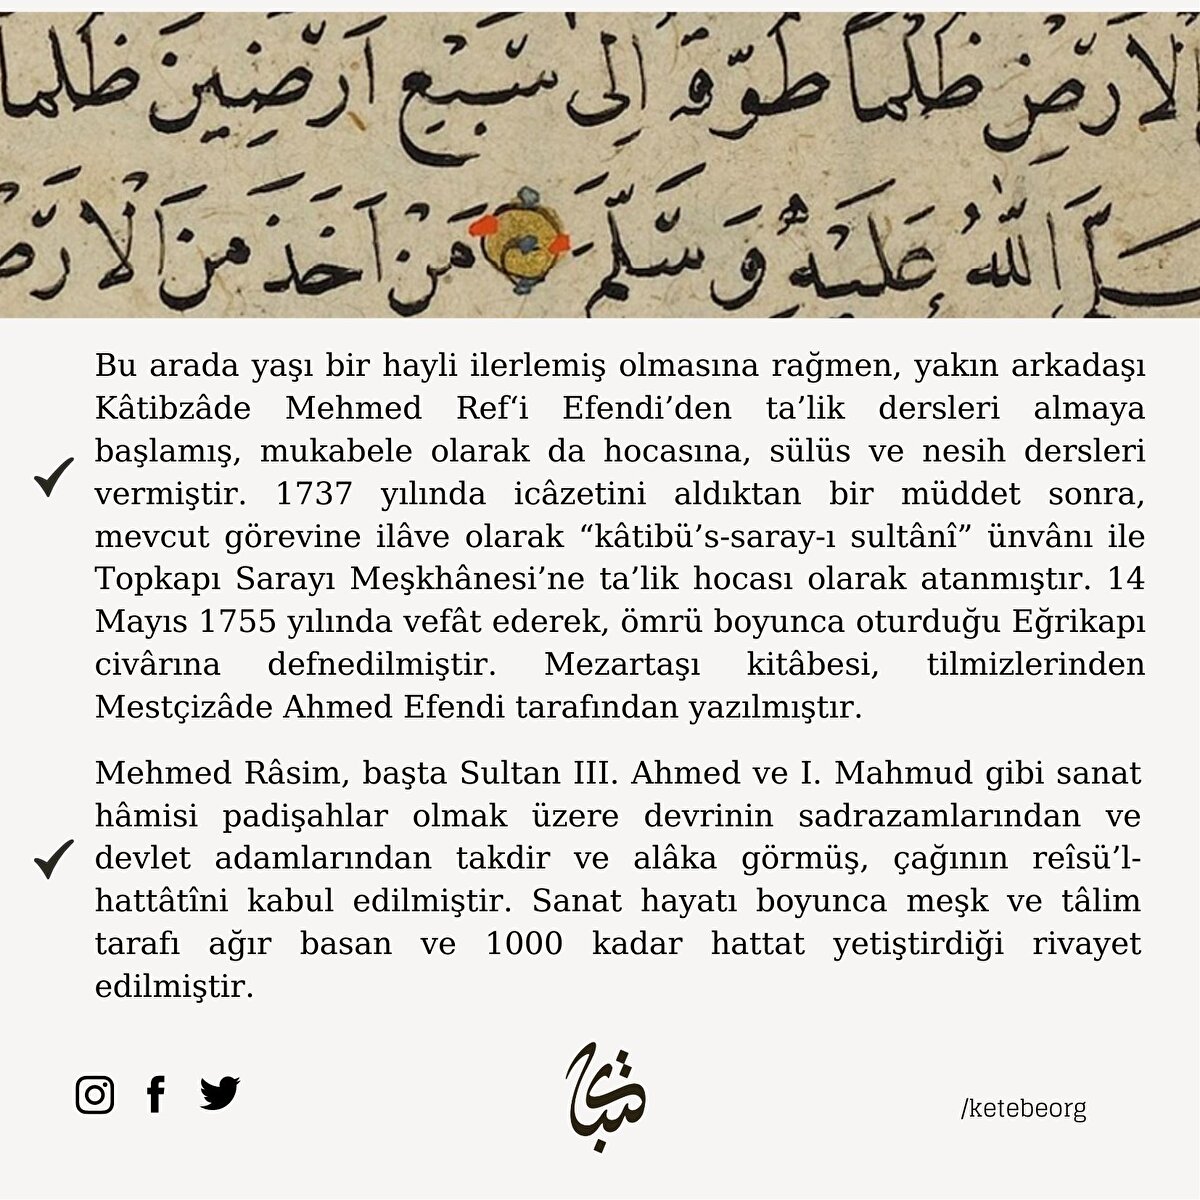 الارض ظلما طوقه الى سبع ارضين ظلما
صلى الله عليه وسلم من اخذ من الارض
Bu arada yaşı bir hayli ilerlemiş olmasına rağmen, yakın arkadaşı
Kâtibzâde Mehmed Ref‘i Efendi’den ta’lik dersleri almaya
başlamış, mukabele olarak da hocasına, sülüs ve nesih dersleri
vermiştir. 1737 yılında icâzetini aldıktan bir müddet sonra,
mevcut görevine ilâve olarak “kâtibü’s-saray-ı sultânî” ünvânı ile
Topkapı Sarayı Meşkhânesi’ne ta’lik hocası olarak atanmıştır. 14
Mayıs 1755 yılında vefât ederek, ömrü boyunca oturduğu Eğrikapı
civârına defnedilmiştir. Mezartaşı kitâbesi, tilmizlerinden
Mestçizâde Ahmed Efendi tarafından yazılmıştır.
Mehmed Râsim, başta Sultan III. Ahmed ve I. Mahmud gibi sanat
hâmisi padişahlar olmak üzere devrinin sadrazamlarından ve
devlet adamlarından takdir ve alâka görmüş, çağının reîsü’l-
hattâtîni kabul edilmiştir. Sanat hayatı boyunca meşk ve tâlim
tarafı ağır basan ve 1000 kadar hattat yetiştirdiği rivayet
edilmiştir.
/ketebeorg